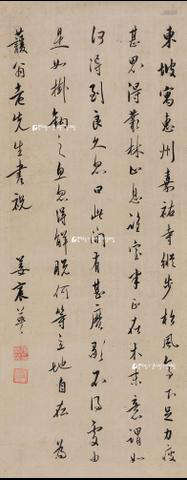 東坡寓惠州嘉祐寺縱步松風亭下足力疲
甚思得叢林止息望亭宇正在木末意謂如
何得到良久忽曰此間有甚麼歇不得處由
是如掛鉤之魚忽得解脫何等自在 為
翁老先生書祝 姜宸英